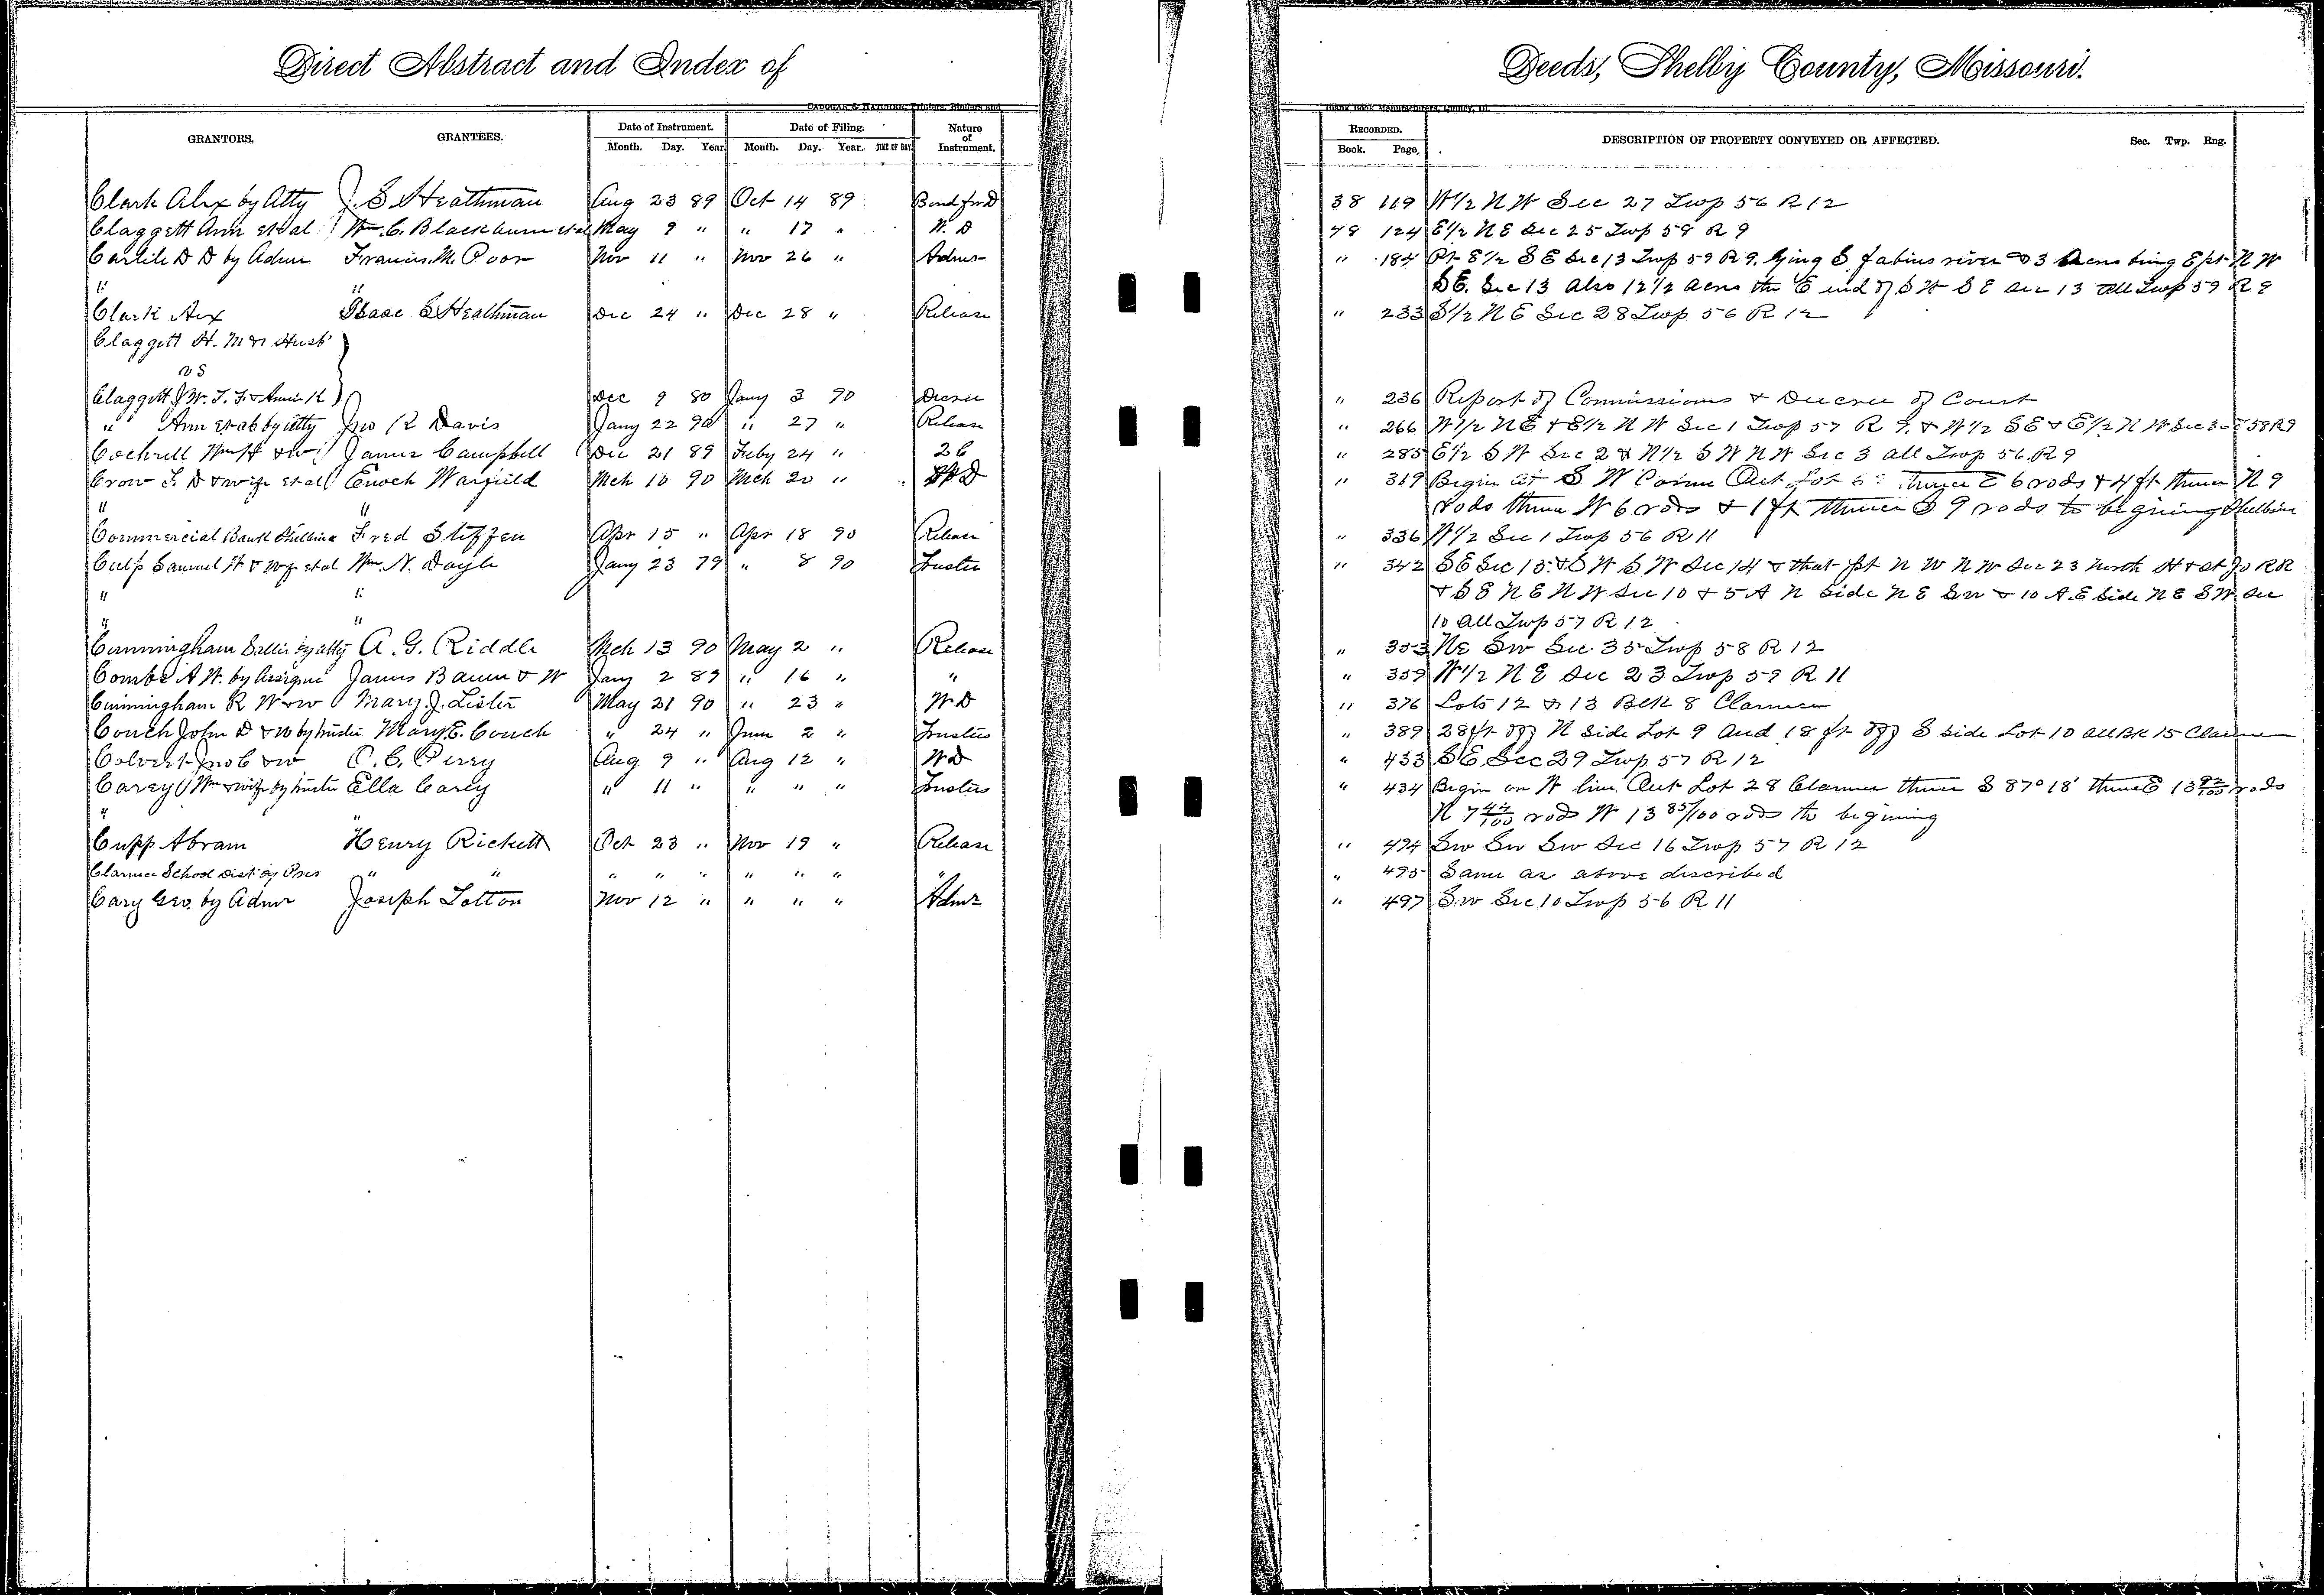 Direct Abstract and Index of
Deeds, Shelby County, Missouri.
CADOGAN & HATCHER, Printers, Binders and
Blank Book Manufacturers, Quincy, Ill.
GRANTORS. GRANTEES. Date of Instrument. Date of Filing. Nature of Instrument. RECORDED. DESCRIPTION OF PROPERTY CONVEYED OR AFFECTED. Sec. Twp. Rng.
Month. Day. Year. Month. Day. Year. TIME OF DAY. Book. Page.
Clark Alex by Atty J. S Heathman Aug 23 89 Oct 14 89 Bond for D 38 119 W1/2 N W Sec 27 Twp 56 R 12
Claggett Ann et al Wm. C. Blackburn et al May 9 " " 17 " W. D 48 124 E1/2 N E Sec 25 Twp 58 R 9
Carlile D D by Admr Francis. M. Poor Nov 11 " Nov 26 " Admr " 184 Pt E1/2 S E Sec 13 Twp 59 R 9. lying S. fabius river & 3 Acres being E pt N W
" " S E. Sec 13 Also 12 1/2 Acres the E end of S W S E Sec 13 all Twp 59 R 9
Clark Alex Isaac S Heathman Dec 24 " Dec 28 " Release " 233 S1/2 N E Sec 28 Twp 56 R 12
Claggett H. M & Husb
vs
Claggett J W. T. F. & Annie K Dec 9 80 Jany 3 90 Decree " 236 Report of Commissions & Decree of Court
" Ann et al by atty Jno R Davis Jany 22 90 " 27 " Release " 266 W1/2 N E & E1/2 N W Sec 1 Twp 57 R 9. & W1/2 S E & E1/2 N W Sec 58 R 9
Cochrell Wm H & w James Campbell Dec 21 89 Feby 24 " 2 C " 285 E1/2 S W Sec 2 & N1/2 S W N W Sec 3 all Twp 56. R 9
Crow F. D & wife et al Enoch Warfield Mch 10 90 Mch 20 " W D " 319 Begin at S W Corner Out Lot thence E 6 rods & 4 ft thence N 9
" " rods thence W 6 rods & 1 ft thence S 9 rods to begining Shelbina
Commercial Bank Shelbina Fred Steffen Apr 15 " Apr 18 90 Release " 336 W1/2 Sec 1 Twp 56 R 11
Culp Samuel H & wife et al Wm. N. Doyle Jany 23 79 " 8 90 Trustee " 342 S E Sec 15. & S W S W Sec 14 & that pt N W N W Sec 23 North H & St Jo R R
" " & S E N E N W Sec 10 & 5 A N side N E Sw & 10 A. E side N E S W. Sec
" " 10 all Twp 57 R 12
Cunningham Sallie by atty A. G. Riddle Mch 13 90 May 2 " Release " 353 NE Sw Sec 35 Twp 58 R 12
Combs A W. by Assignee James Baum & W Jany 2 89 " 16 " " " 359 W1/2 N E Sec 23 Twp 59 R 11
Cunningham R W & w Mary. J. Lister May 21 90 " 23 " W D " 376 Lots 12 & 13 Blk 8 Clarence
Couch John D & w by trustee Mary. E. Couch " 24 " June 2 " Trustees " 389 28 ft off N side Lot 9 and 18 ft off S side Lot 10 all Bk 15 Clarence
Colvert Jno C & w O. C. Perry Aug 9 " Aug 12 " W D " 433 S E Sec 29 Twp 57 R 12
Carey Wm & wife by trustee Ella Carey " 11 " " " " Trustees " 434 Begin on W line Out Lot 28 Clarence thence S 87° 18' thence E 13 92/100 rods
" " N 7 42/100 rods W 13 85/100 rods to begining
Cupp Abram Henry Rickett Oct 23 " Nov 19 " Release " 494 Sw Sw Sw Sec 16 Twp 57 R 12
Clarence School Dist by Pres " " " " " " " " " " 495 Same as above described
Cary Geo. by Admr Joseph Totton Nov 12 " " " " Admr " 497 Sw Sec 10 Twp 56 R 11